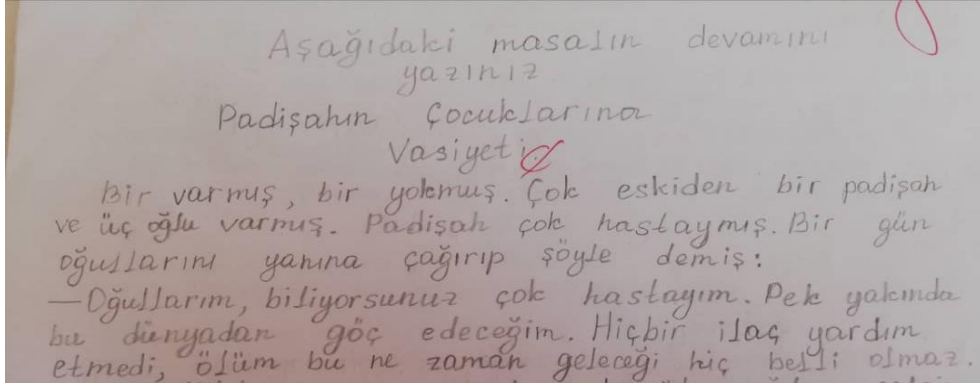 Aşağıdaki masalın devamını
yazınız
Padişahın Çocuklarına
Vasiyeti
Bir varmış, bir yokmuş. Çok eskiden bir padişah
ve üç oğlu varmış. Padişah çok hastaymış. Bir gün
oğullarını yanına çağırıp şöyle demiş:
—Oğullarım, biliyorsunuz çok hastayım. Pek yakında
bu dünyadan göç edeceğim. Hiçbir ilaç yardım
etmedi, ölüm bu ne zaman geleceği hiç belli olmaz.